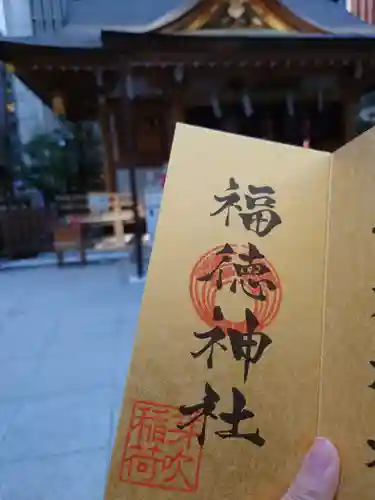 福徳神社
芽吹稲荷